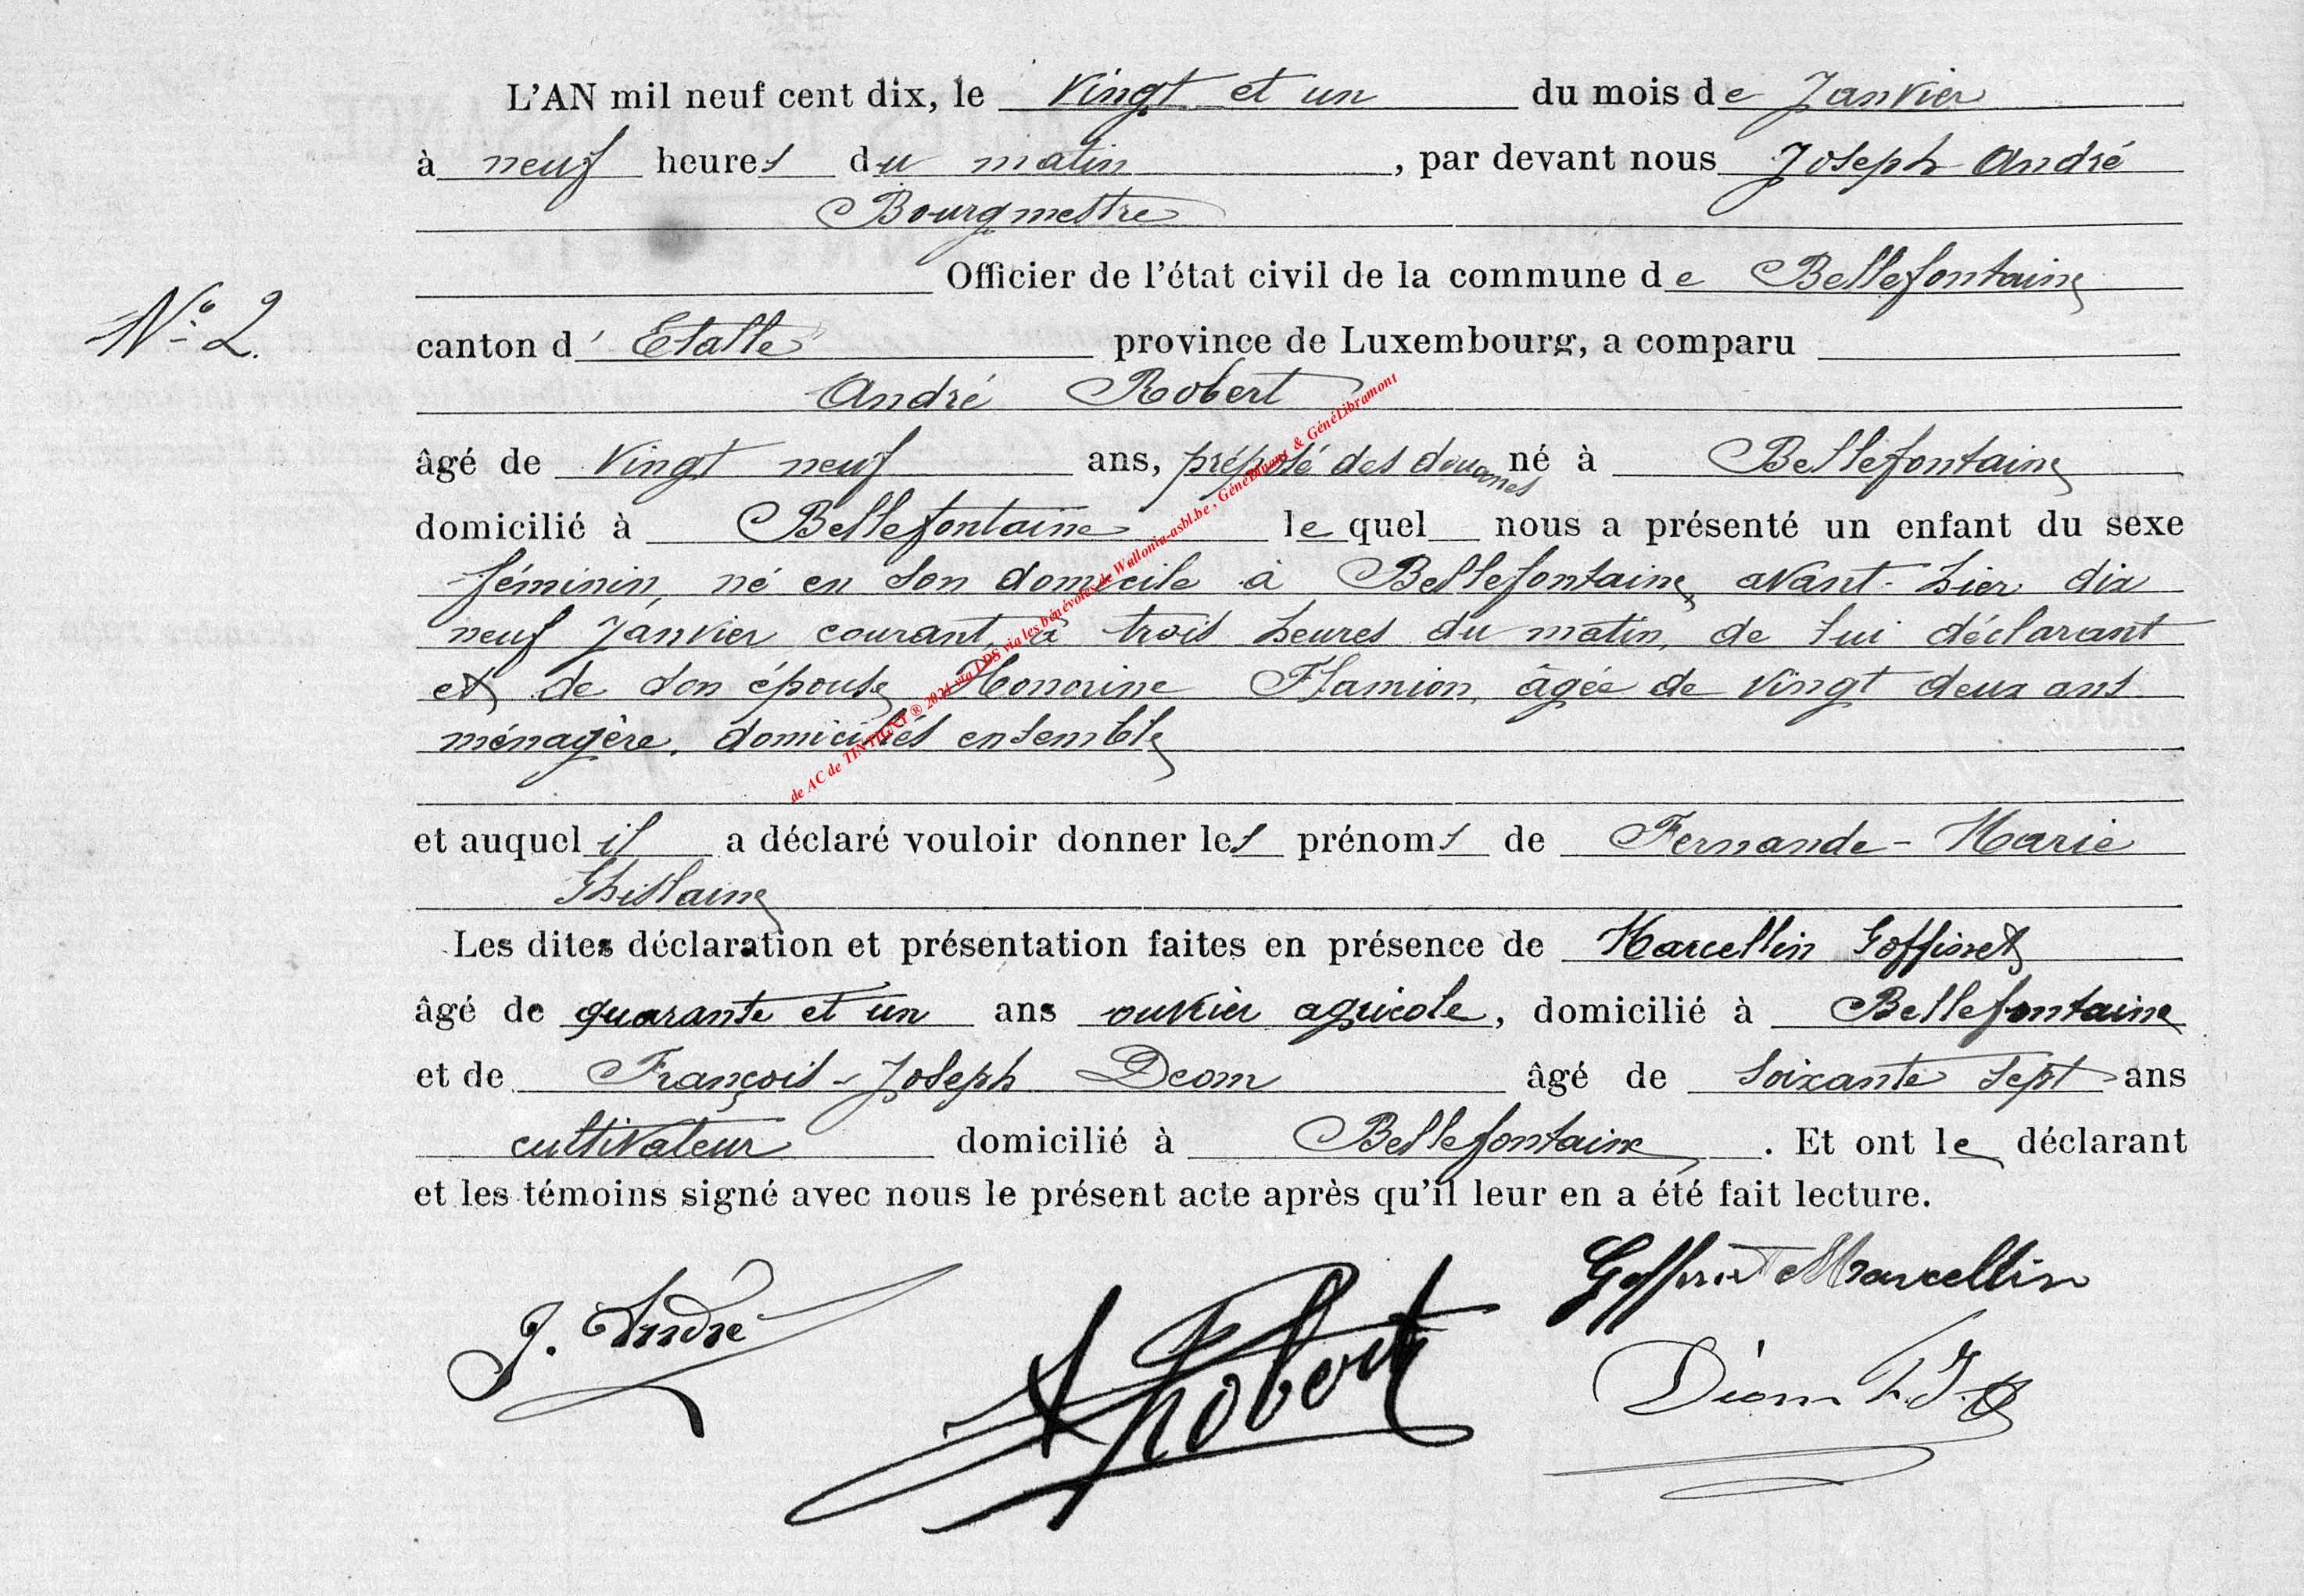 L'AN mil neuf cent dix, le vingt et un du mois de Janvier
à neuf heures du matin, par devant nous Joseph André
Bourgmestre
Officier de l'état civil de la commune de Bellefontaine
N° 2.
canton d' Etalle province de Luxembourg, a comparu
André Robert
âgé de vingt neuf ans, préposé des douanes né à Bellefontaine
domicilié à Bellefontaine lequel nous a présenté un enfant du sexe
féminin, né en son domicile à Bellefontaine avant-hier dix
neuf Janvier courant, à trois heures du matin, de lui déclarant
et de son épouse Honorine Flamion, âgée de vingt deux ans
ménagère, domiciliés ensemble
et auquel il a déclaré vouloir donner les prénoms de Fernande-Marie
Ghislaine
Les dites déclaration et présentation faites en présence de Marcellin Goffinet
âgé de quarante et un ans ouvrier agricole, domicilié à Bellefontaine
et de François-Joseph Deom âgé de soixante sept ans
cultivateur domicilié à Bellefontaine. Et ont le déclarant
et les témoins signé avec nous le présent acte après qu'il leur en a été fait lecture.
J. André
A Robert
Goffinet Marcellin
Déom F.J.
de AC de TINTIGNY ® 2024 via LDS via les bénévoles de Wallonia-asbl.be, GénéDinant & GénéLibramont